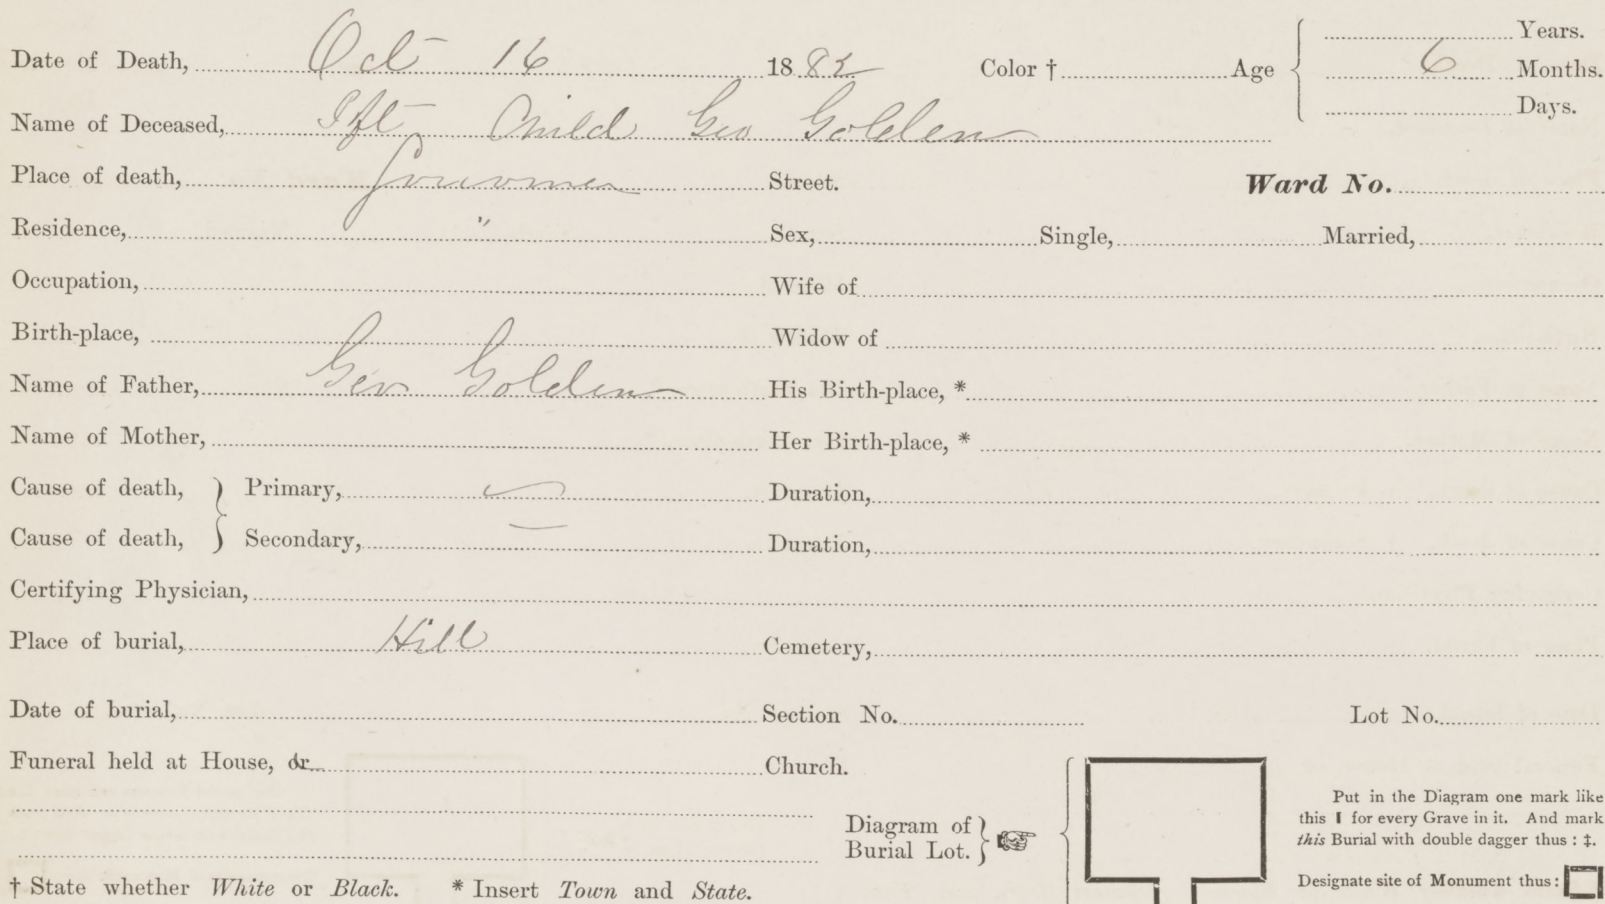 Date of Death, Oct 16 1882 Color † Age { Years.
6 Months.
Days.
Name of Deceased, Child Geo Golden
Place of death, Street. Ward No.
Residence, " Sex, Single, Married,
Occupation, Wife of
Birth-place, Widow of
Name of Father, Geo Golden His Birth-place, *
Name of Mother, Her Birth-place, *
Cause of death, } Primary, Duration,
Cause of death, } Secondary, — Duration,
Certifying Physician,
Place of burial, Hill Cemetery,
Date of burial, Section No. Lot No.
Funeral held at House, or Church.
Diagram of
Burial Lot. }
Put in the Diagram one mark like
this I for every Grave in it. And mark
this Burial with double dagger thus : ‡.
Designate site of Monument thus :
† State whether White or Black. * Insert Town and State.